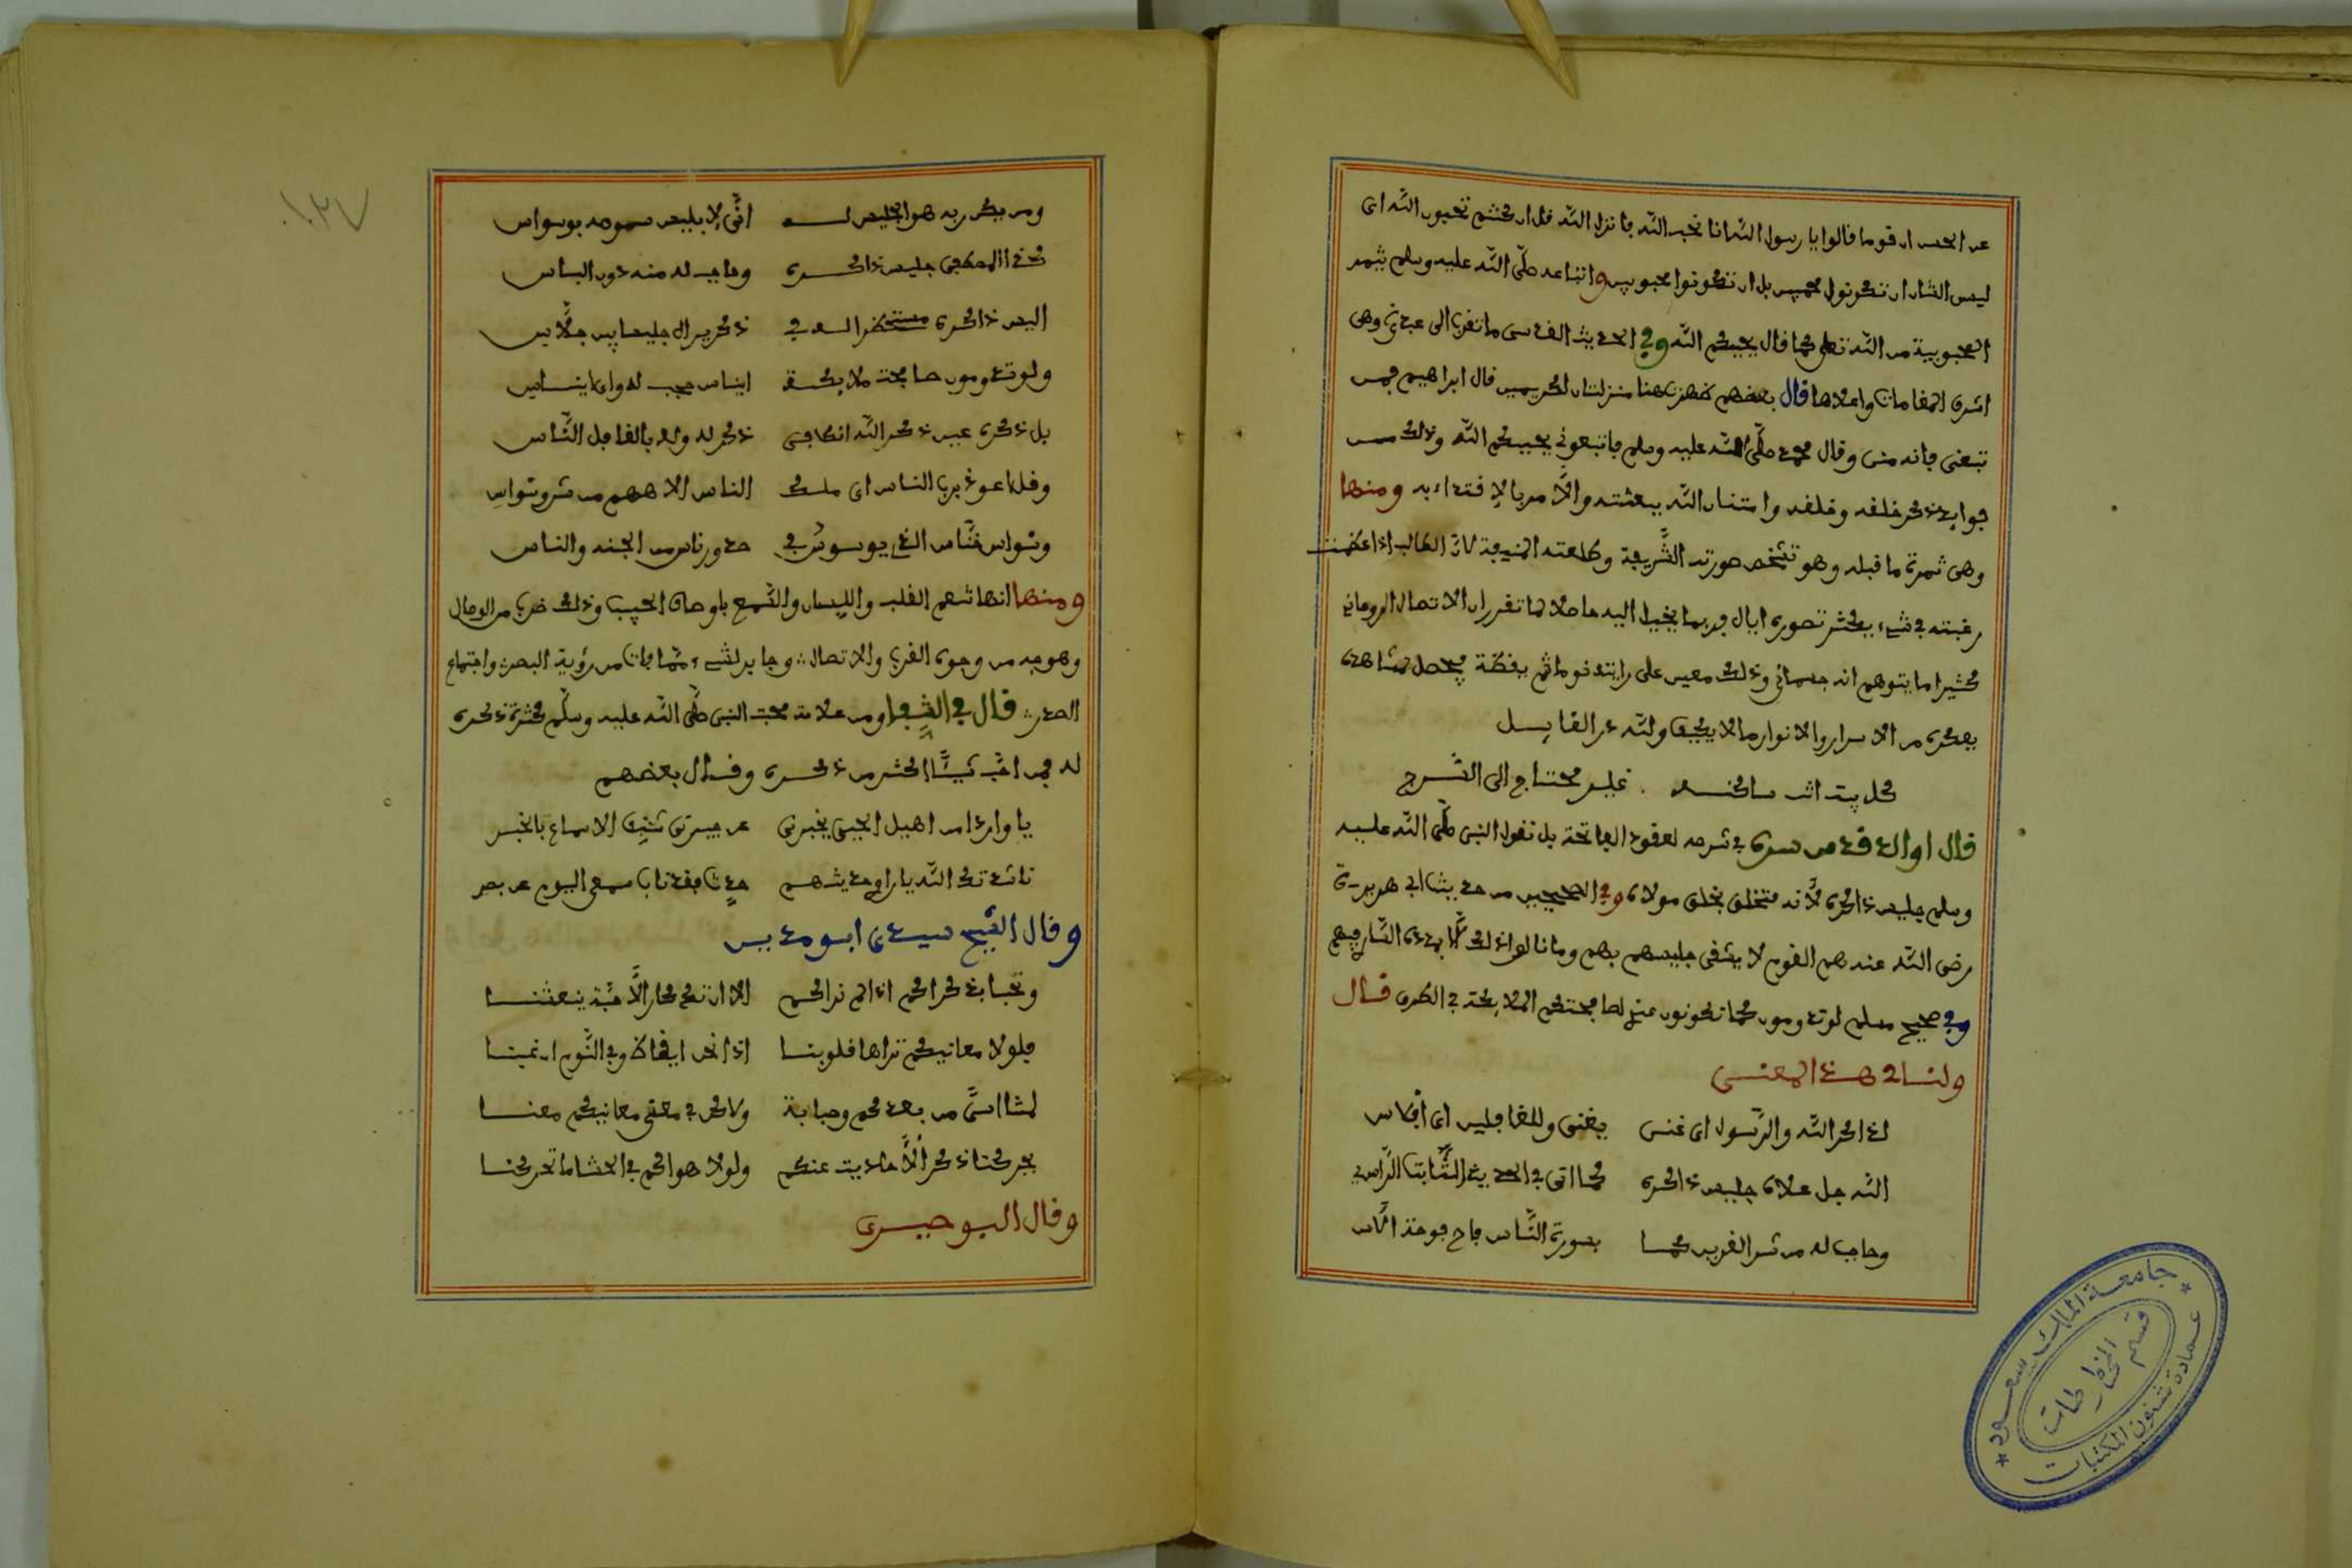 عن الحسن ان قوما قالوا يا رسول الله انا نحب الله فانزل الله قل ان كنتم تحبون الله اى
ليس الشان ان تكونوا محبين بل ان تكونوا محبوبين واتباعه صلّى الله عليه وسلم يثمر
المحبوبية من الله تعلى كما قال يحببكم الله وفي الحديث القدسى ما تقرب الى عبدى وهى
اشرف المقامات واعلاها قال بعضهم هنا منزلتان لكريمين قال ابراهيم فمن
تبعنى فانه منى وقال محمد صلّى الله عليه وسلم فاتبعونى يحببكم الله وذلك من
فوايد ذكر خلقه وخلقه وامتنان الله ببعثته والأمر بالاقتداء به ومنها
وهى ثمرة ما قبله وهو تشخص صورته الشّريفة وطلعته المنيفة لان الطالب اذا عظمت
رغبته في شىء يكثر تصوره ايال وربما يخيل اليه حاصلا كما تقرر ان الاتصال الروحانى
كثيرا ما يتوهم انه جسمانى وذلك معين على رايته نوما ثم يقظة فيحصل بمشاهدة
بفكره من الاسرار والانوار ما لا يكيف ولله در القايل
كل بيت انت ساكنه . غير محتاج الى السّرج
قال الوالد قدس سره في شرحه لعقود الفاتحة بل نقول النبى صلّى الله عليه
وسلم جليس ذاكره لأنه متخلق بخلق مولاه وفي الصحيحين من حديث ابى هريرة
رضى الله عنه هم القوم لا يشقى جليسهم بهم وما نالوا ذلك الّا بهدى السّارى فيهم
وفي صحيح مسلم لو تدومون كما تكونون عندى لصافحتكم الملايكة في الطرق قال
ولنا في هذا المعنى
لذاكر الله والرّسول اى غنى يغنى وللغافلين اى افلاس
الله جل علاه جليس ذاكره كما اتى في الحديث الثّابت الرّاسى
وصاحب له من شر القرين كما بصورة النّاس فاح فوحة الآس
١٣٧
ومن يكن ربه هو الجليس له انّى لابليس سومه بوسواس
كذا المصطفى جليس ذاكره وصاحب له منه دون الباس
اليس ذاكره مستحضرا له في ذكر يرى ال جليسا بين جلّاس
ولو تدومون صافحت ملايكة ايناس حب له واى ايناس
بل ذكره عين ذكر الله اذ كافى ذكر له وله بالغافل النّاس
وقل اعوذ برب الناس اى ملك الناس الاههم من شر وسواس
وسواس خنّاس الذى يوسوس في صدور ناس من الجنة والناس
ومنها انها تنعم القلب واللسان والسّمع باوصاف الحبيب وذلك ضرب من الوصال
وهو جه من وجوه القرب والاتصال وجابر لشىء مّما فات من رؤية البصر واجتماع
الصدر قال في الشِّفا ومن علامة محبة النبى صلّى الله عليه وسلّم كثرة ذكره
له فمن احب شيئًا اكثر من ذكره وقال بعضهم
يا واردا من اهيل الحى يخبرنى عن جيرتى شنِّف الاسماع بالخبر
ناشدتك الله يا راوى حديثهم حدث فقد ناب سمعى اليوم عن بصر
وقال الشّيخ سيدى ابو مدين
ونحيا بذكراكم اذا لم نراكم الا ان تذكار الأحبّة ينعشنا
فلولا معانيكم تراها قلوبنا اذا نحن ايقاظ وفي النّوم ان غبنا
لمتنا اسًى من بعدكم وصبابة ولاكن في معنى معانيكم معنا
يحركنا ذكر الأحاديث عنكم ولولا هواكم في الحشا ما تحركنا
وقال البوصيرى
جامعة الملك سعود
قسم المخطوطات
عمادة شئون المكتبات